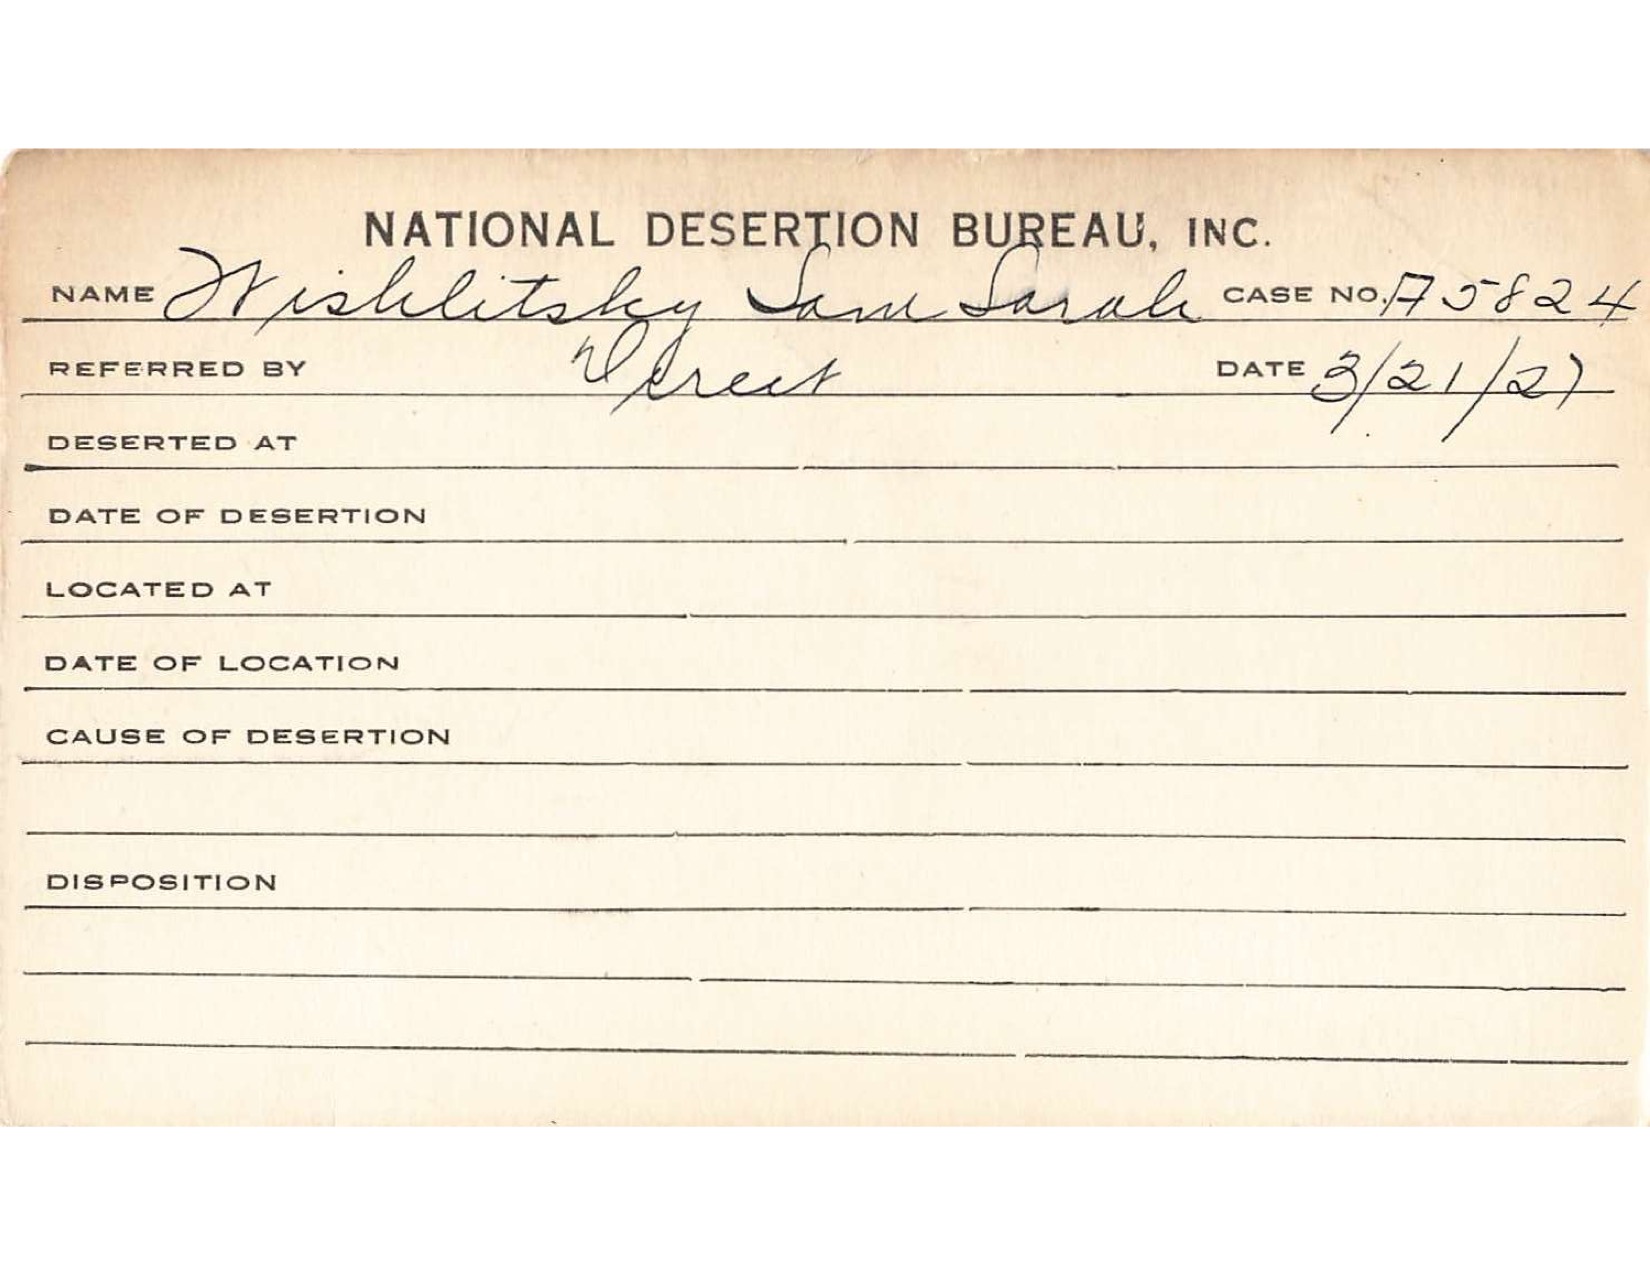 NATIONAL DESERTION BUREAU, INC.
NAME Wishlitsky Sam Sarah CASE NO. A5824
REFERRED BY Direct DATE 3/21/27
DESERTED AT
DATE OF DESERTION
LOCATED AT
DATE OF LOCATION
CAUSE OF DESERTION
DISPOSITION